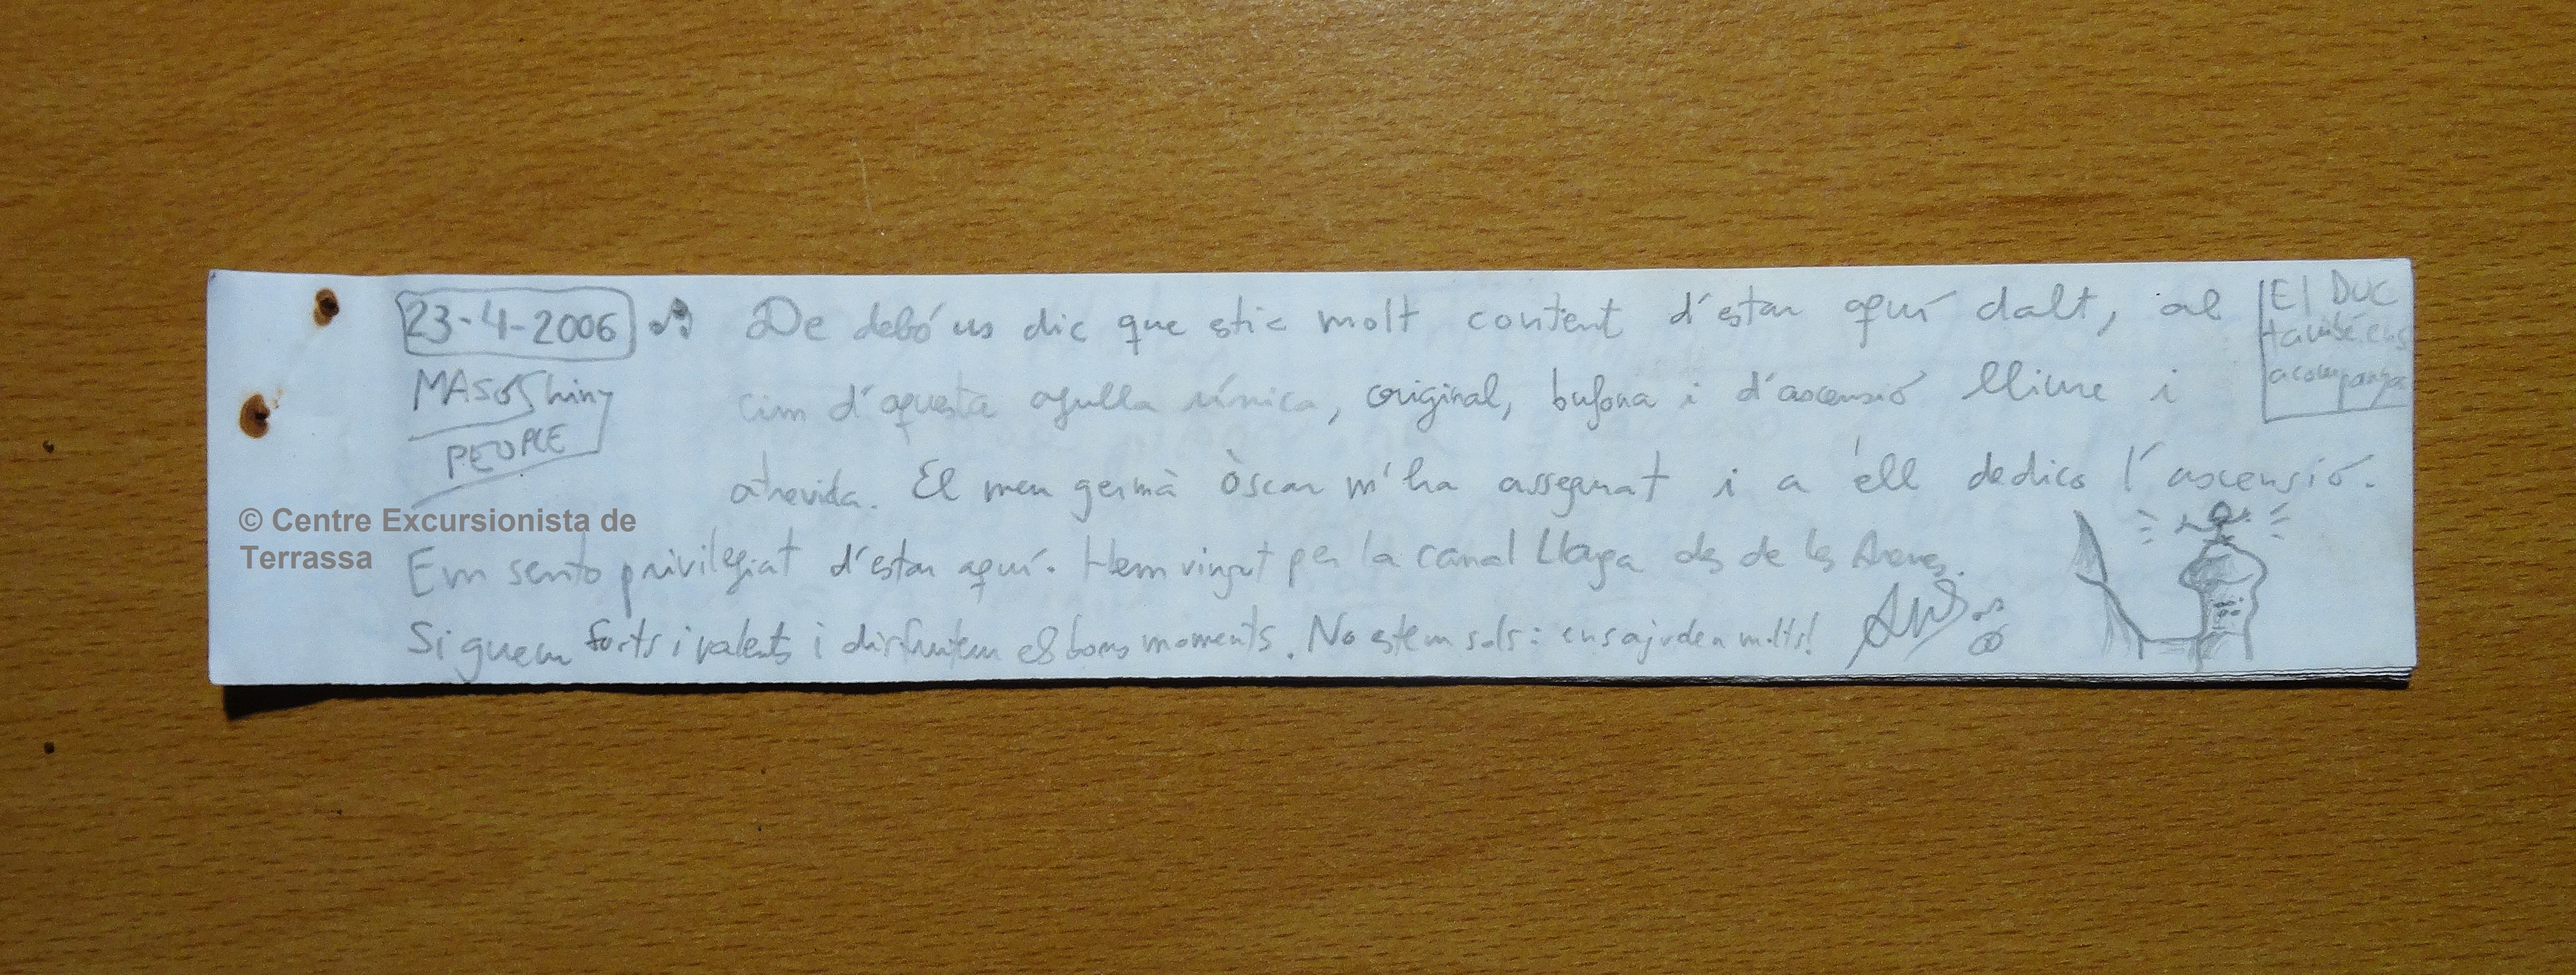 23-4-2006 De debó us dic que estic molt content d'estar aquí dalt, al
El DUC
també ens
acompanya
MASOShiny
PEOPLE
cim d'aquesta agulla única, original, bufona i d'ascensió lliure i
atrevida. El meu germà Òscar m'ha assegurat i a ell dedico l'ascensió.
© Centre Excursionista de
Terrassa
Em sento privilegiat d'estar aquí. Hem vingut per la canal Llarga des de les Arenes.
Siguem forts i valents i disfrutem els bons moments. No estem sols: ens ajuden molts!